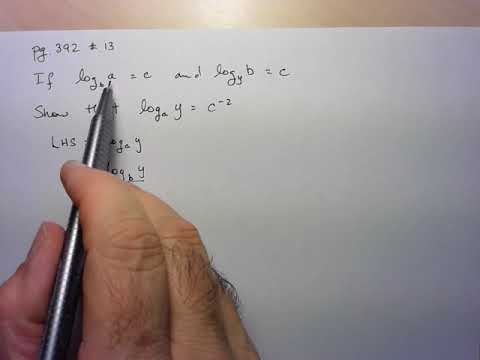 pg. 392 # 13
If log_b a = c and log_y b = c
Show log_a y = c^-2
LHS log_a y
log_b y